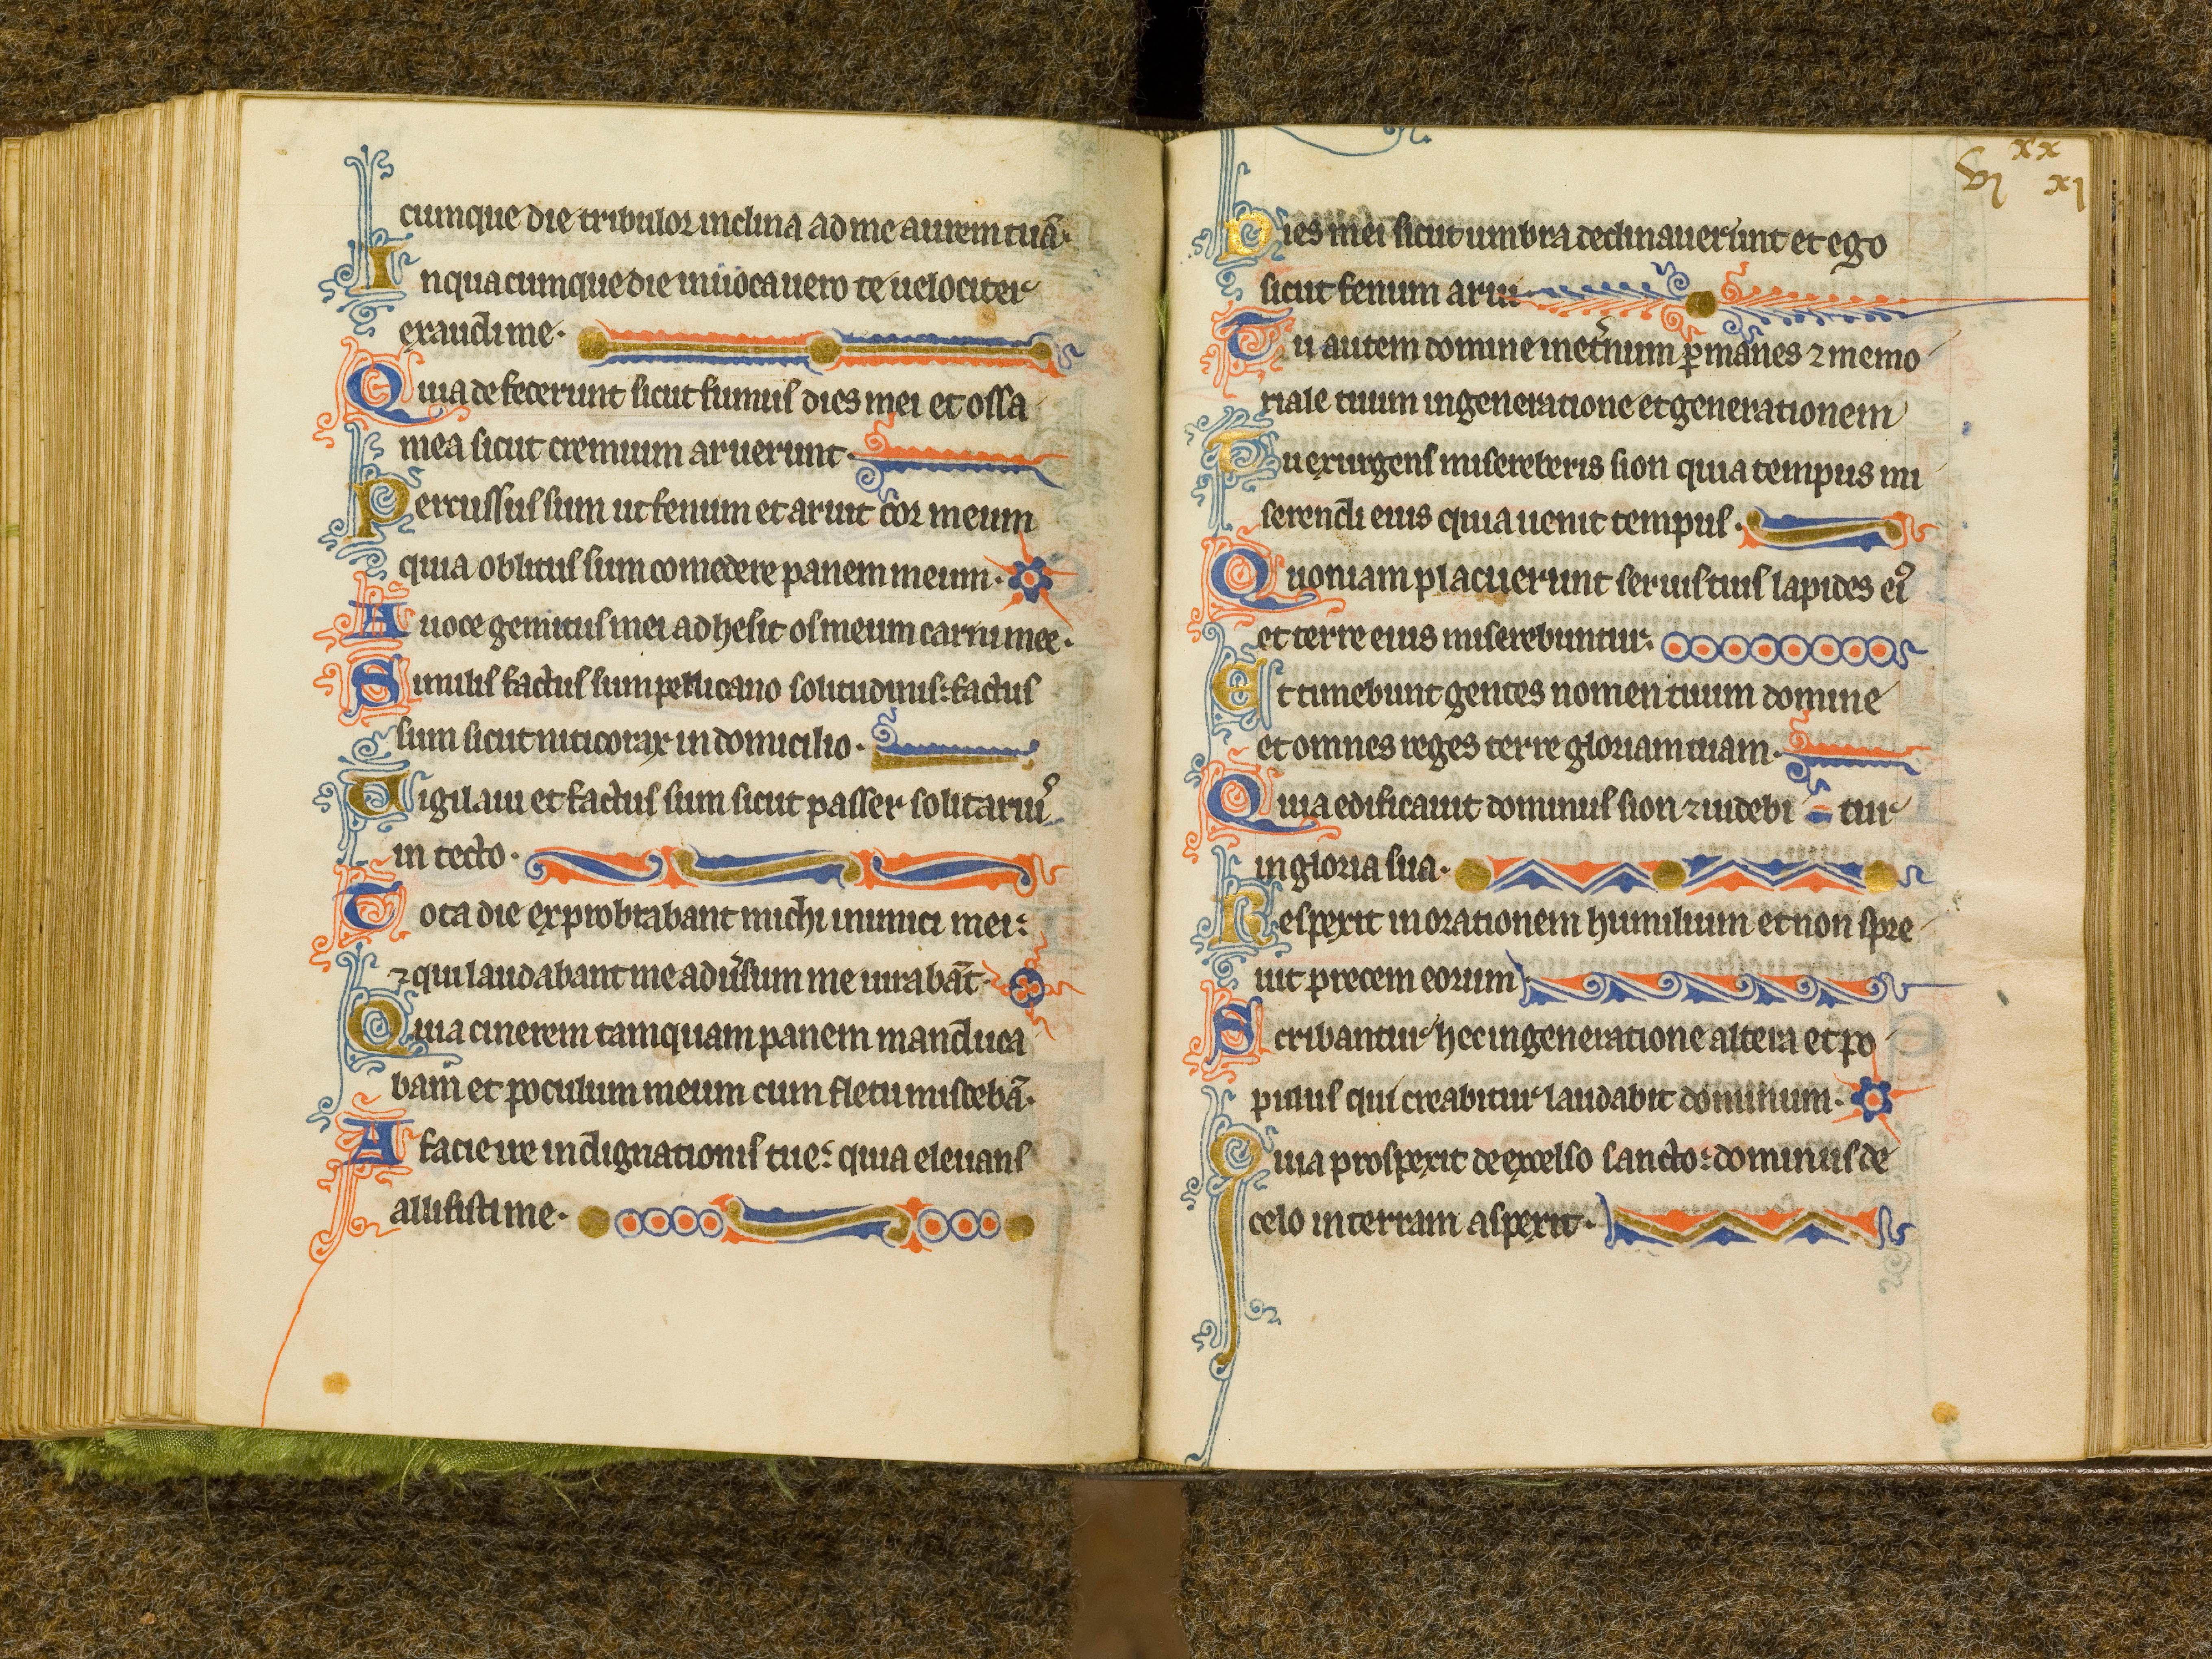 cumque die tribulor inclina ad me aurem tuā·
In quacumque die inuocauero te uelociter
exaudi me·
Quia defecerunt sicut fumus dies mei et ossa
mea sicut cremium aruerunt·
Percussus sum ut fenum et aruit cor meum
quia oblitus sum comedere panem meum·
A uoce gemitus mei adhesit os meum carni mee·
Similis factus sum pellicano solitudinis: factus
sum sicut niticorax in domicilio·
Uigilaui et factus sum sicut passer solitariuꝰ
in tecto·
Tota die exprobrabant michi inimici mei:
⁊ qui laudabant me adu͛sum me iurabāt·
Quia cinerem tamquam panem manduca
bam et poculum meum cum fletu miscebā·
A facie ire indignationis tue: quia eleuans
allisisti me·
vi xx xi
Dies mei sicut umbra declinauerunt et ego
sicut fenum arui
Tu autem domine inet͛num ꝑmanes ⁊ memo
riale tuum in generatione et generationem
Tu exurgens misereberis sion quia tempus mi
serendi eius quia uenit tempus·
Quoniam placuerunt seruis tuis lapides eiꝰ
et terre eius miserebuntur·
Et timebunt gentes nomen tuum domine
et omnes reges terre gloriam tuam·
Quia edificauit dominus sion ⁊ uidebi tur
in gloria sua·
Respexit in orationem humilium et non spre
uit precem eorum
Scribantur hec in generatione altera et po
pulus qui creabitur laudabit dominum·
Quia prospexit de excelso sancto: dominus de
celo in terram aspexit·